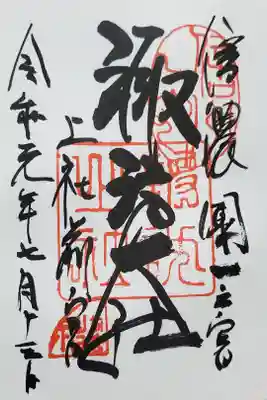 信濃國一之宮
諏訪大社
上社前宮
令和元年七月十三日